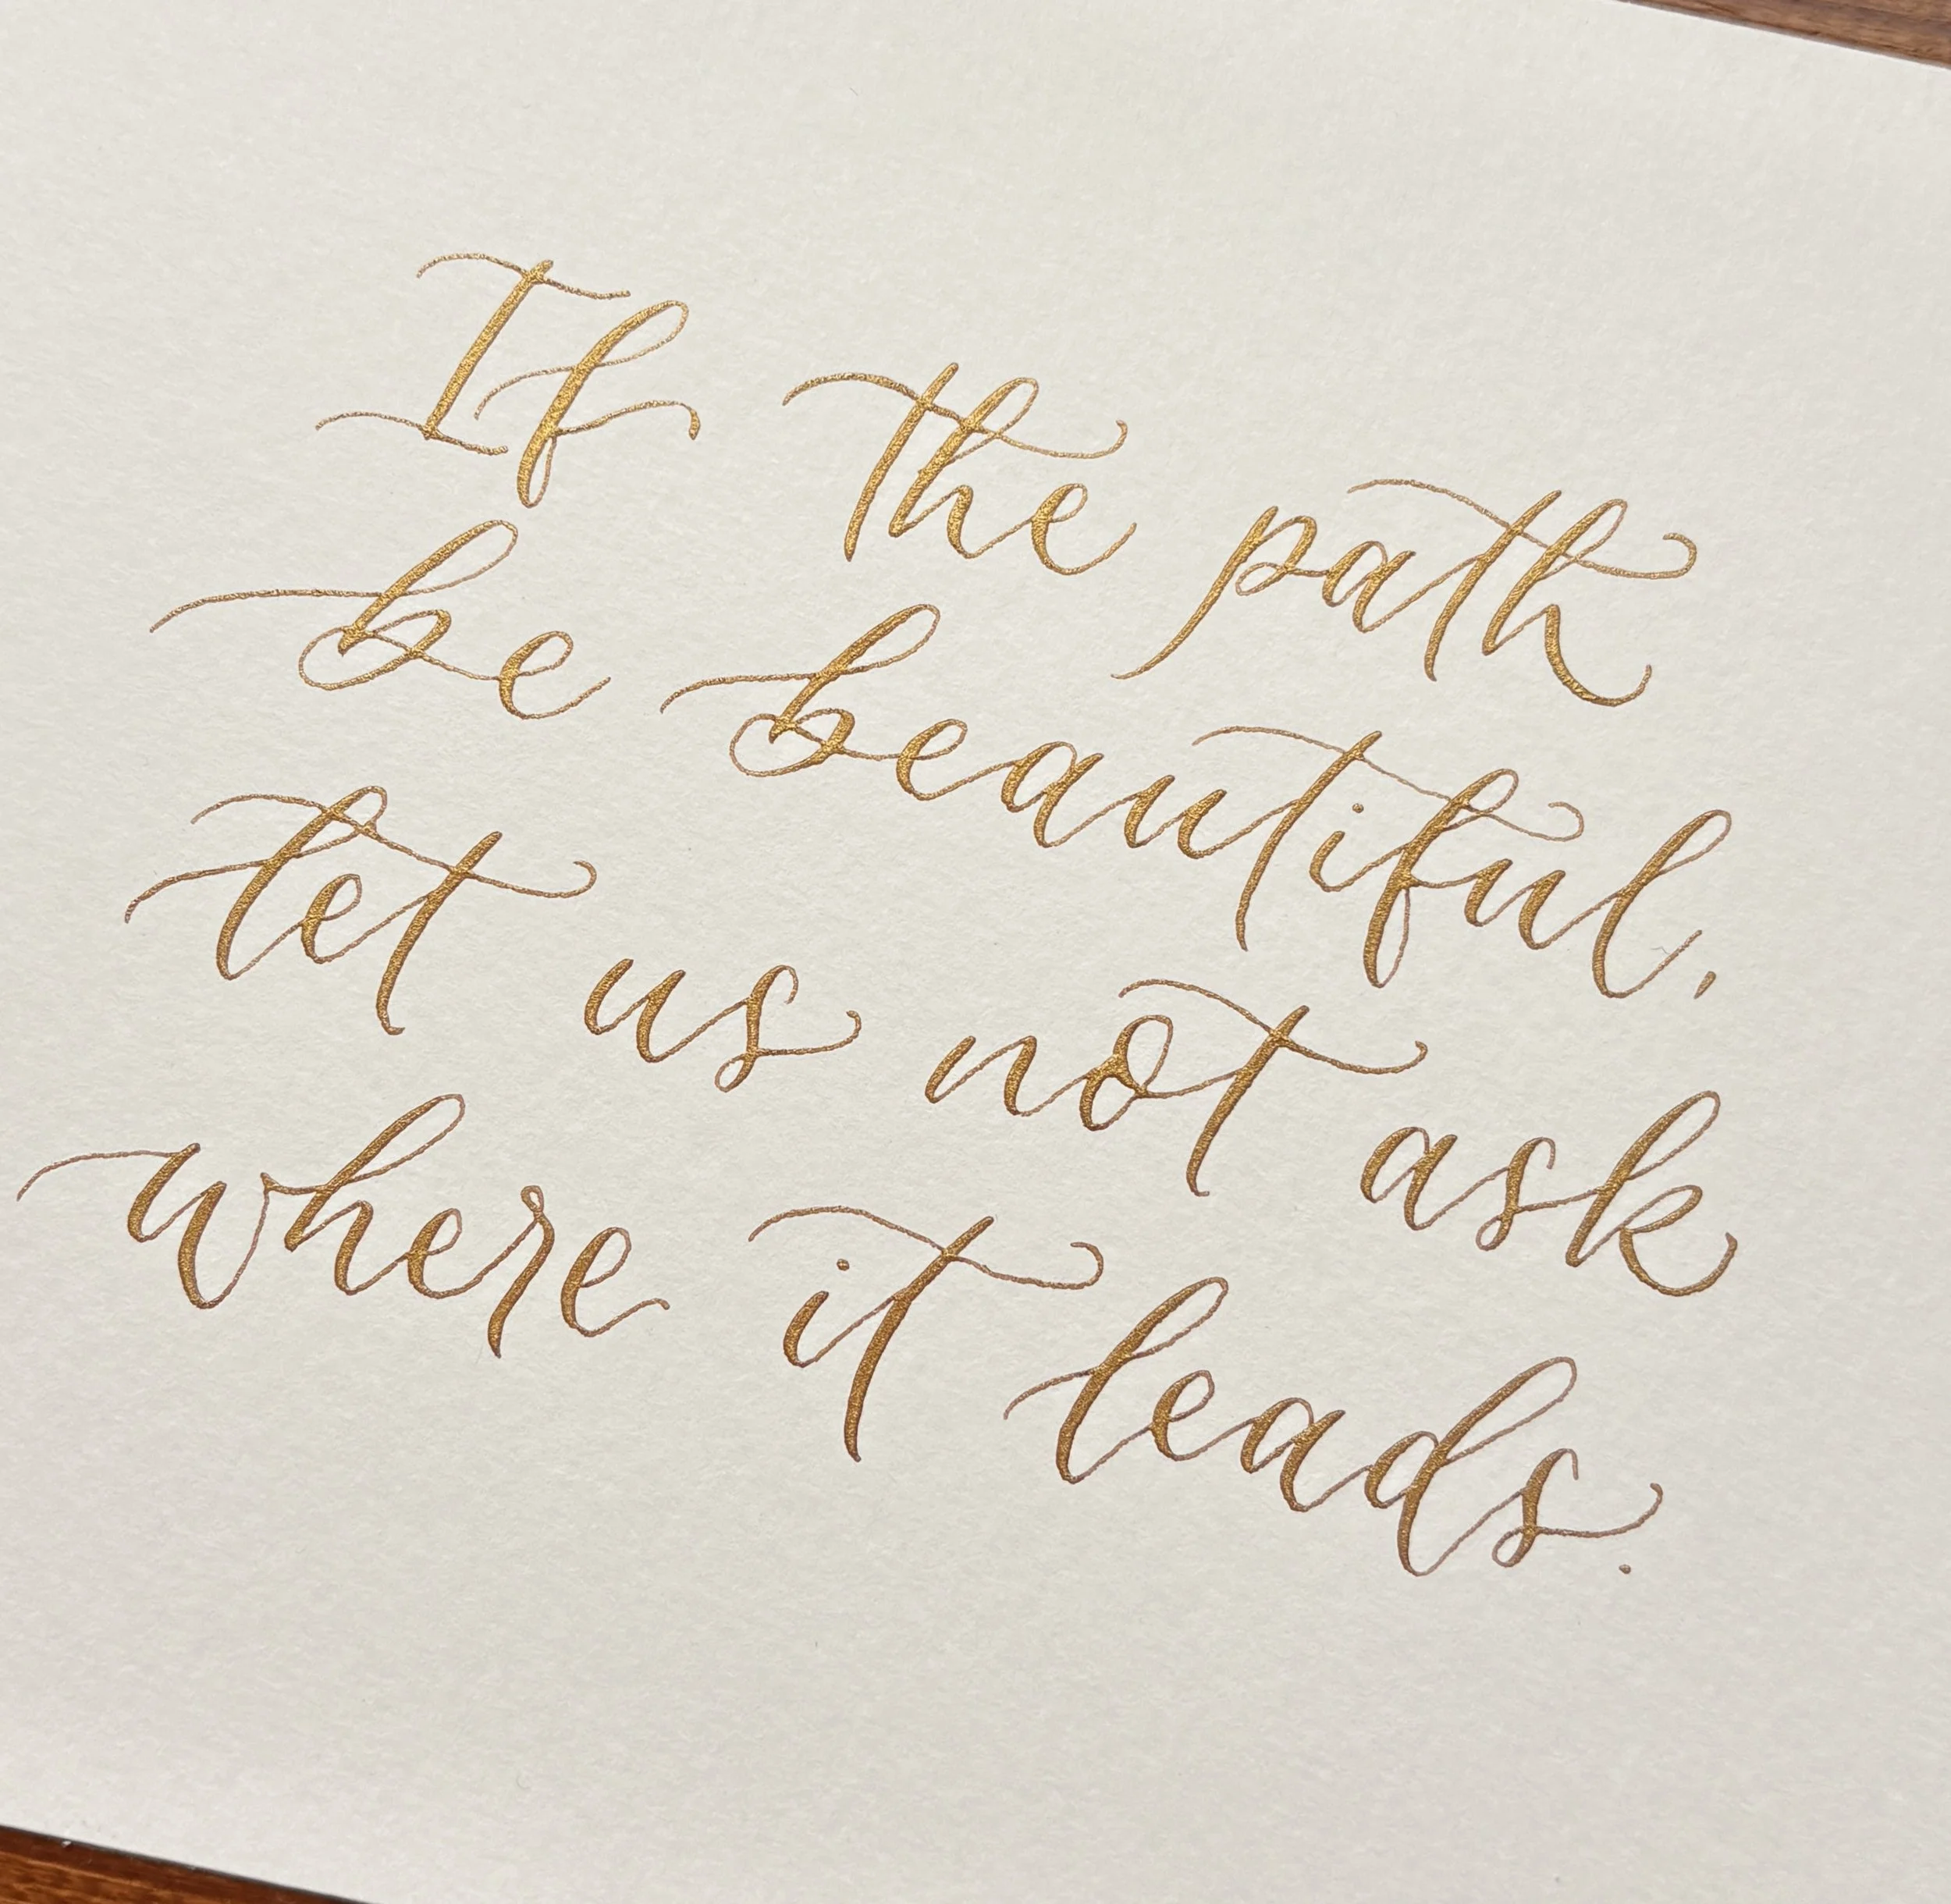 If the path
be beautiful,
let us not ask
where it leads.